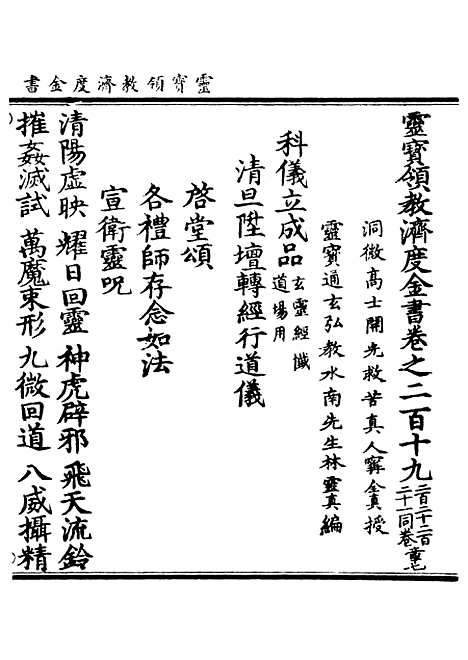 靈寶領教濟度金書
靈寶領教濟度金書卷之二百十九
二百二十二百
二十一同卷
洞微高士開光救苦真人甯全真授
靈寶通玄弘教水南先生林靈真編
科儀立成品
玄靈經懺
道場用
清旦陞壇轉經行道儀
啓堂頌
各禮師存念如法
宣衛靈呪
清陽虛映 耀日回靈 神虎辟邪 飛天流鈴
摧姦滅試 萬魔束形 九微回道 八威攝精